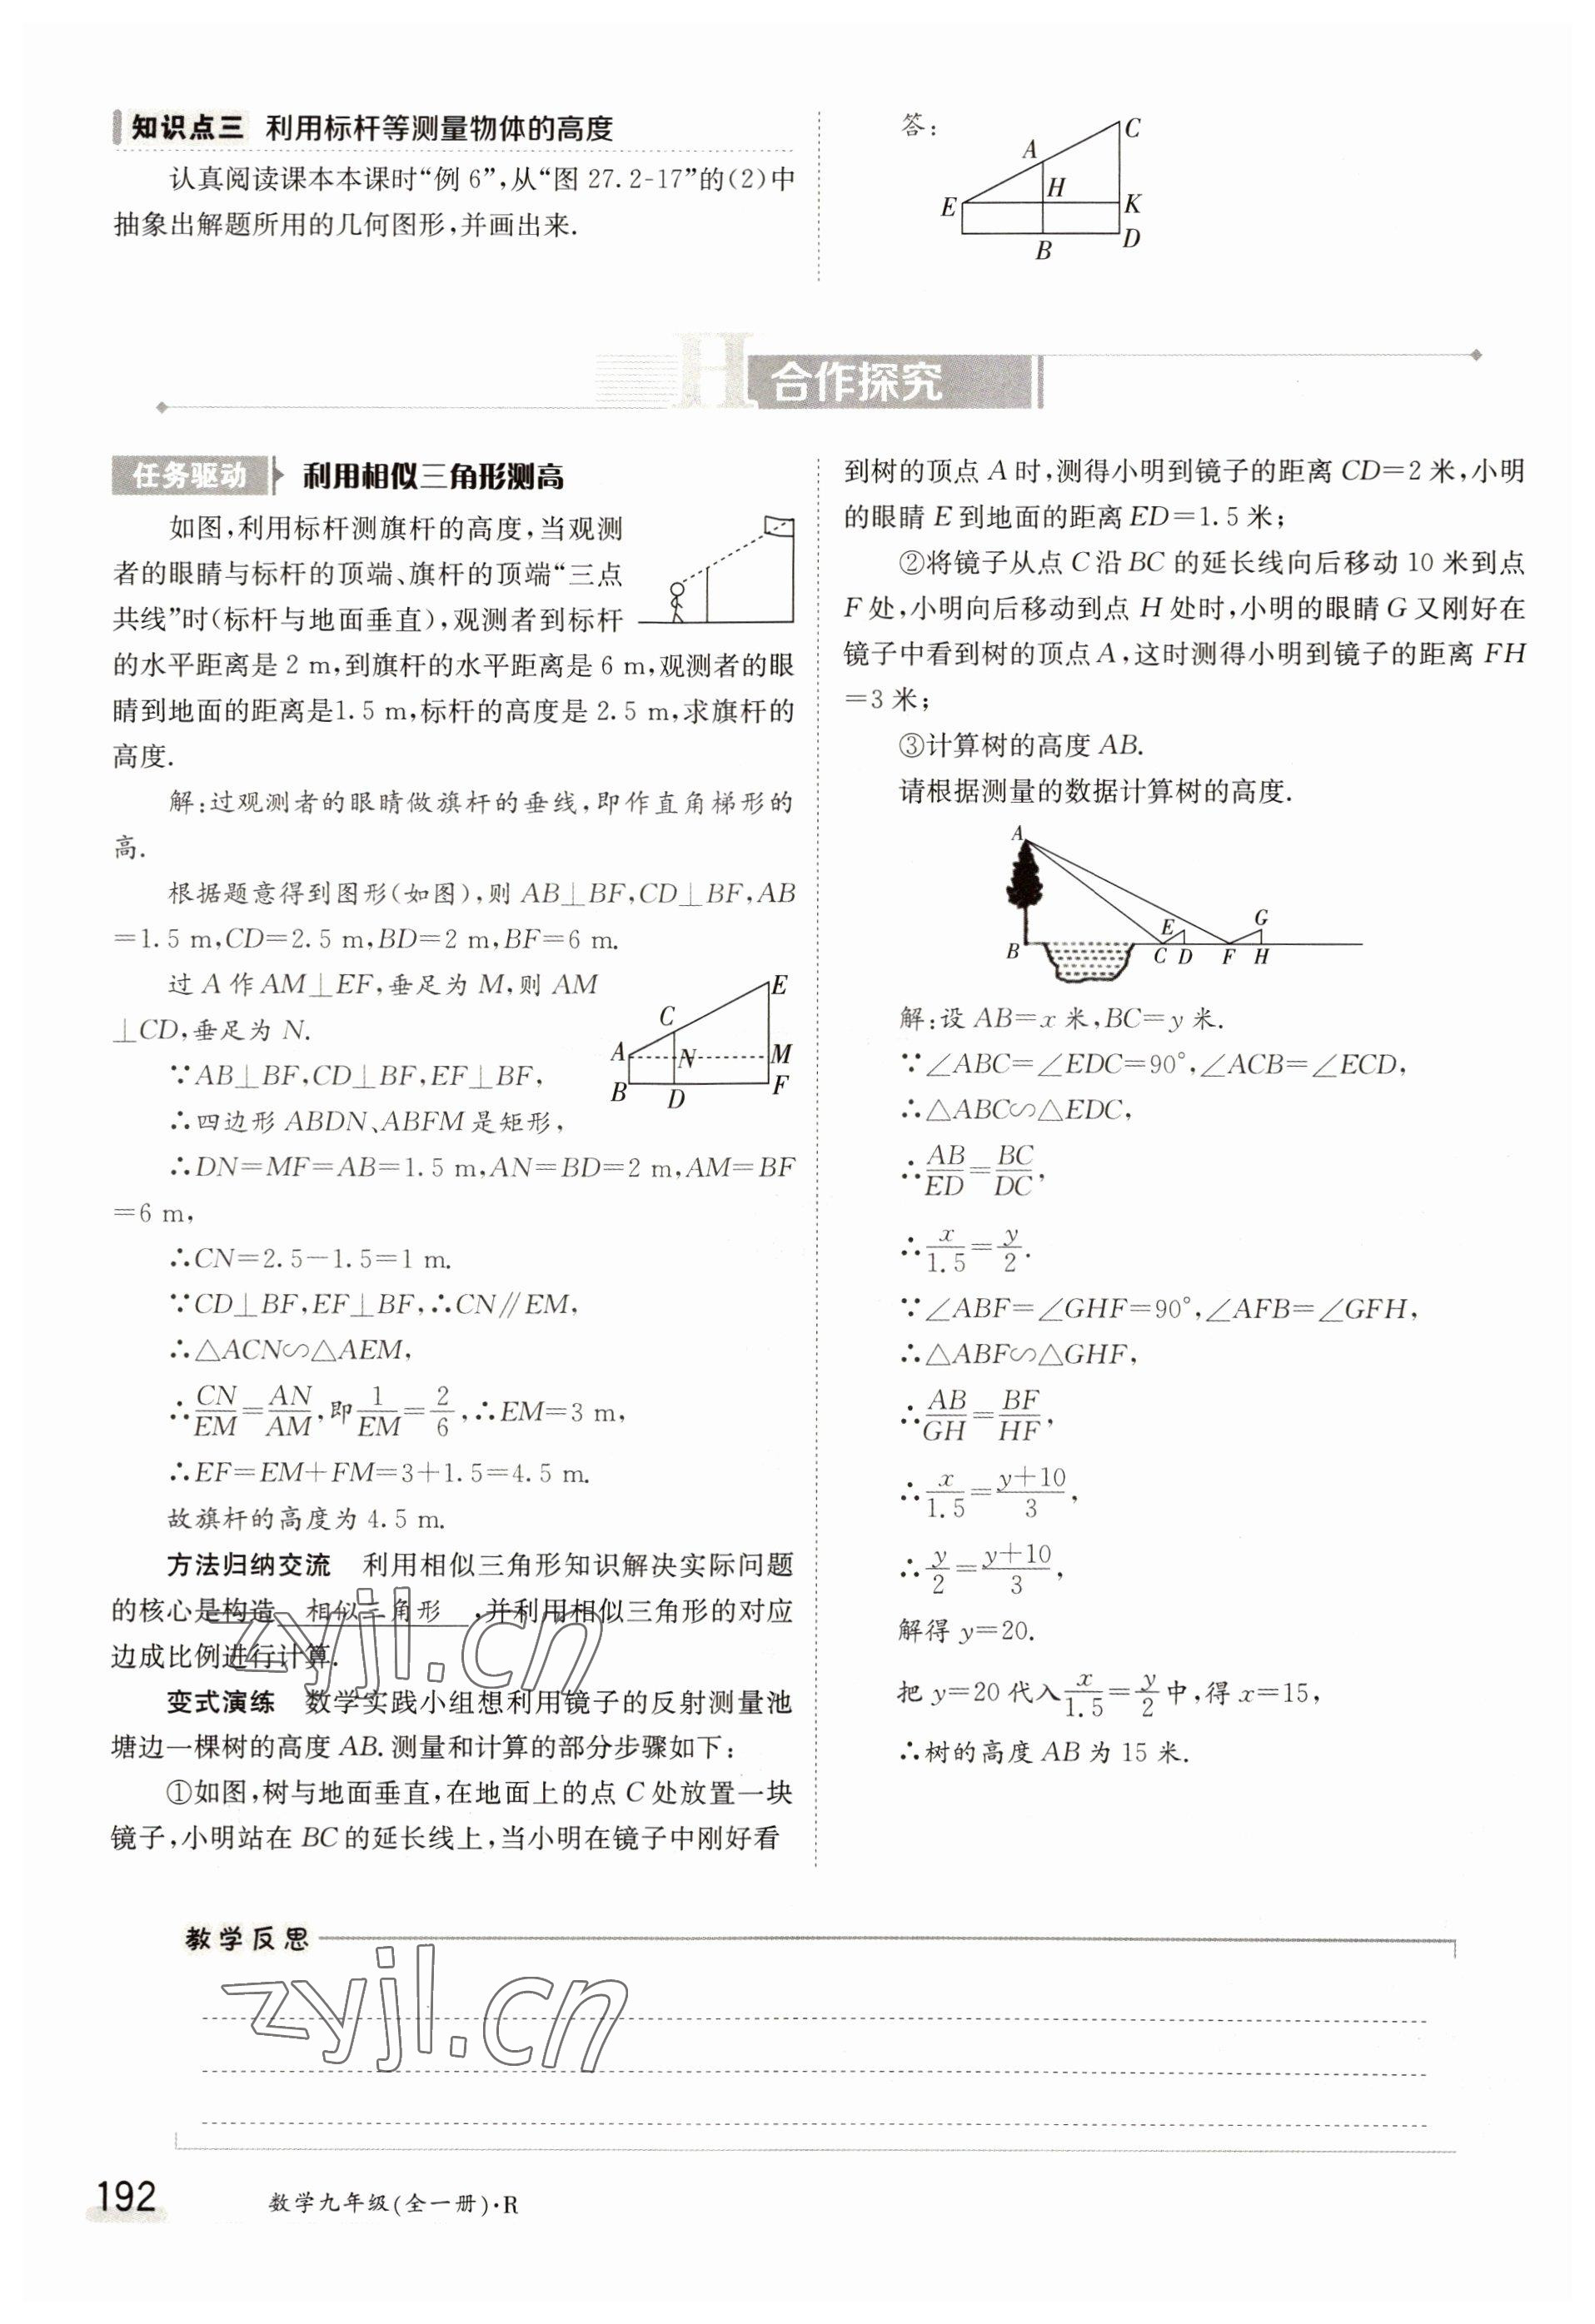 知识点三 利用标杆等测量物体的高度
认真阅读课本本课时“例6”,从“图27.2-17”的(2)中
抽象出解题所用的几何图形,并画出来.
答:
C
A
H
E
K
B
D
H 合作探究
任务驱动 利用相似三角形测高
如图,利用标杆测旗杆的高度,当观测
者的眼睛与标杆的顶端、旗杆的顶端“三点
共线”时(标杆与地面垂直),观测者到标杆
的水平距离是2 m,到旗杆的水平距离是6 m,观测者的眼
睛到地面的距离是1.5 m,标杆的高度是2.5 m,求旗杆的
高度.
解:过观测者的眼睛做旗杆的垂线,即作直角梯形的
高.
根据题意得到图形(如图),则AB⊥BF,CD⊥BF,AB
=1.5 m,CD=2.5 m,BD=2 m,BF=6 m.
过A作AM⊥EF,垂足为M,则AM
⊥CD,垂足为N.
E
C
A
N
M
B
D
F
∵AB⊥BF,CD⊥BF,EF⊥BF,
∴四边形ABDN、ABFM是矩形,
∴DN=MF=AB=1.5 m,AN=BD=2 m,AM=BF
=6 m,
∴CN=2.5-1.5=1 m.
∵CD⊥BF,EF⊥BF,∴CN∥EM,
∴△ACN∽△AEM,
∴CN/EM=AN/AM,即1/EM=2/6,∴EM=3 m,
∴EF=EM+FM=3+1.5=4.5 m.
故旗杆的高度为4.5 m.
方法归纳交流 利用相似三角形知识解决实际问题
的核心是构造 相似三角形 ,并利用相似三角形的对应
边成比例进行计算.
变式演练 数学实践小组想利用镜子的反射测量池
塘边一棵树的高度AB.测量和计算的部分步骤如下:
①如图,树与地面垂直,在地面上的点C处放置一块
镜子,小明站在BC的延长线上,当小明在镜子中刚好看
到树的顶点A时,测得小明到镜子的距离CD=2米,小明
的眼睛E到地面的距离ED=1.5米;
②将镜子从点C沿BC的延长线向后移动10米到点
F处,小明向后移动到点H处时,小明的眼睛G又刚好在
镜子中看到树的顶点A,这时测得小明到镜子的距离FH
=3米;
③计算树的高度AB.
请根据测量的数据计算树的高度.
A
E
G
B
C D F H
解:设AB=x米,BC=y米.
∵∠ABC=∠EDC=90°,∠ACB=∠ECD,
∴△ABC∽△EDC,
∴AB/ED=BC/DC,
∴x/1.5=y/2.
∵∠ABF=∠GHF=90°,∠AFB=∠GFH,
∴△ABF∽△GHF,
∴AB/GH=BF/HF,
∴x/1.5=(y+10)/3,
∴y/2=(y+10)/3,
解得y=20.
把y=20代入x/1.5=y/2中,得x=15,
∴树的高度AB为15米.
zyjl.cn
教学反思
zyjl.cn
192
数学九年级(全一册)·R